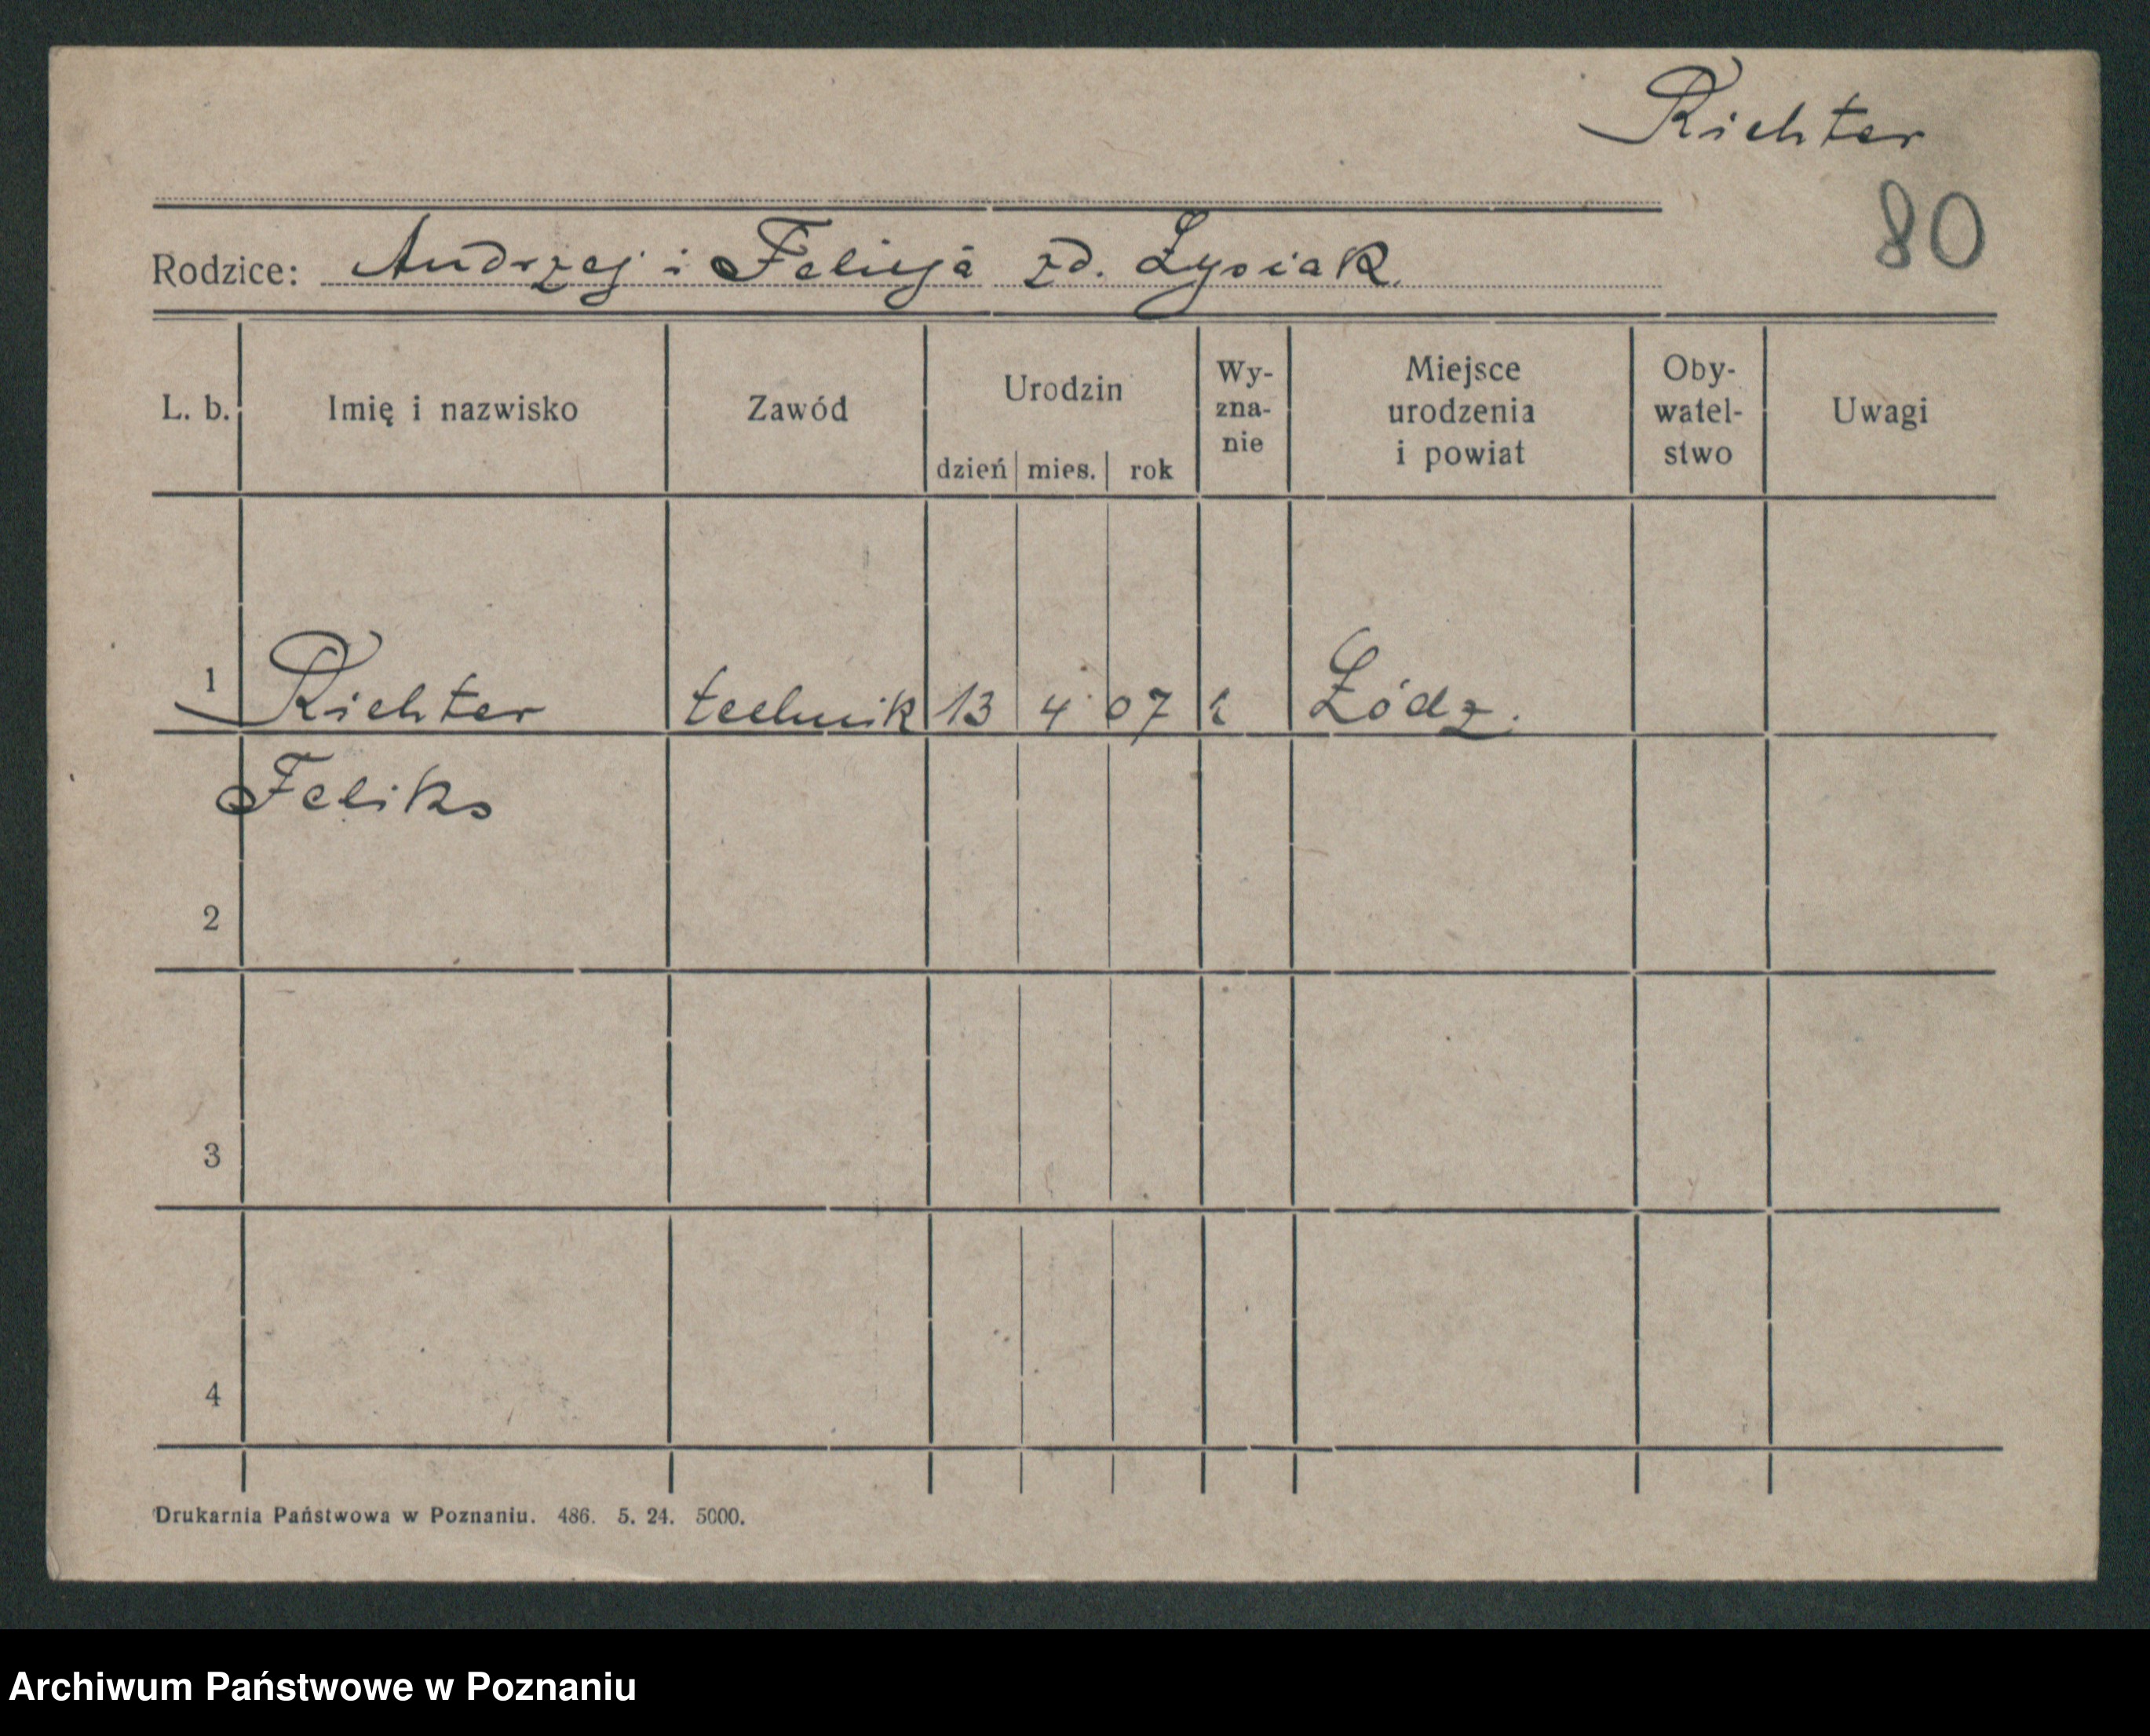 Richter
80
Rodzice: Andrzej i Felicja zd. Łysiak.
L. b. Imię i nazwisko Zawód Urodzin dzień mies. rok Wy-zna-nie Miejsce urodzenia i powiat Oby-watel-stwo Uwagi
1 Richter technik 13 4 07 Łódz.
Feliks
2
3
4
Drukarnia Państwowa w Poznaniu. 486. 5. 24. 5000.
Archiwum Państwowe w Poznaniu